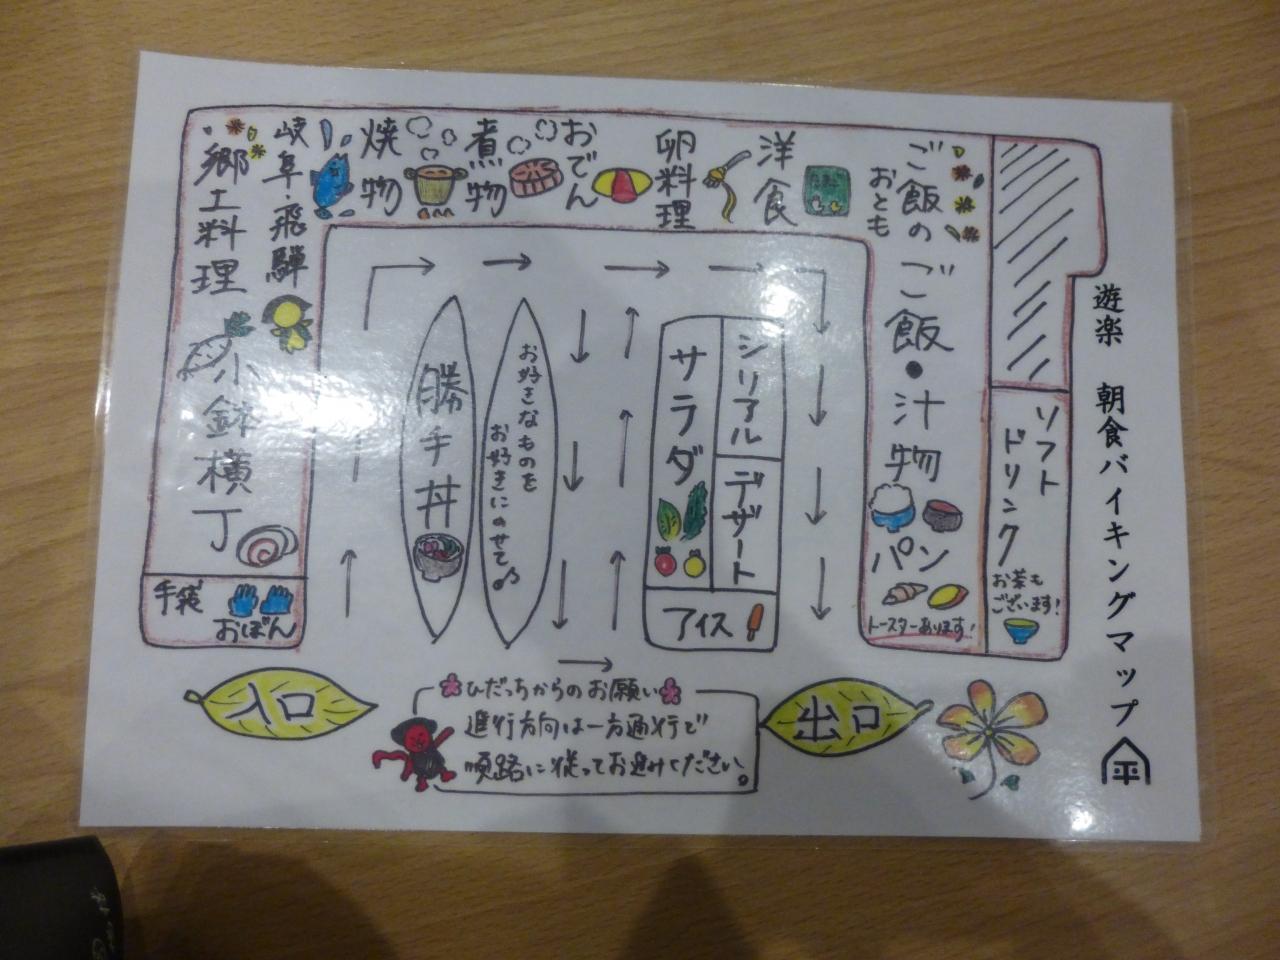 遊楽 朝食バイキングマップ
平
手袋
おぼん
小鉢横丁
岐阜・飛騨
郷土料理
焼物
煮物
おでん
卵料理
洋食
ご飯の
おとも
ご飯・汁物
パン
トースターあります!
ソフト
ドリンク
お茶も
ございます!
勝手丼
お好きなものを
お好きにのせて♪
サラダ
シリアル
デザート
アイス
入口
出口
ひだっちからのお願い
進行方向は一方通行で
順路に従ってお進みください。